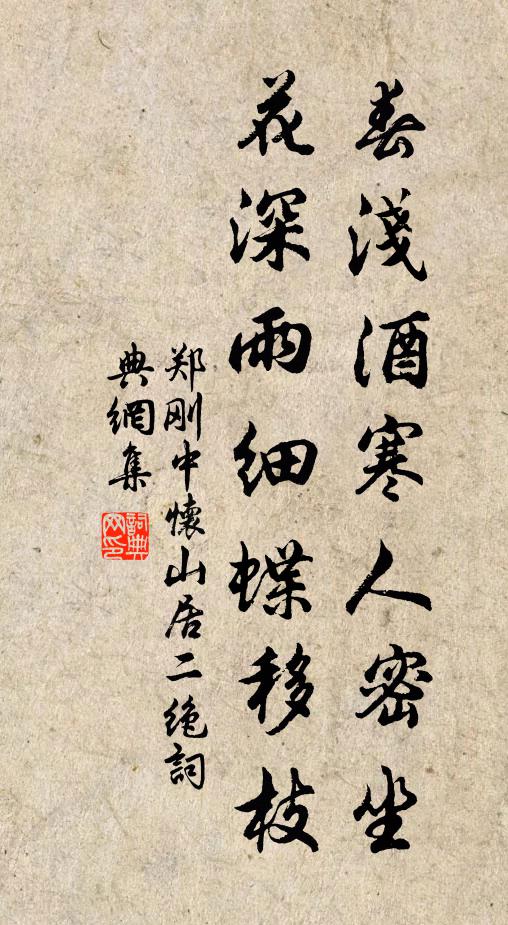 春淺酒寒人密坐
花深雨細蝶移枝
郑刚中懷山居二絶詞
典網集
詞典网印